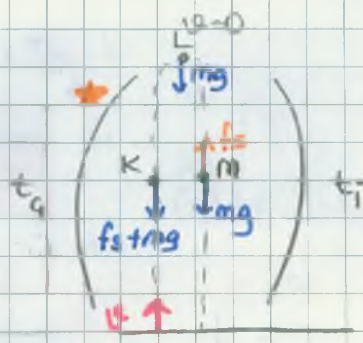 L ϑ=0
mg
fs
K m
tç ti
fs+mg mg
ϑ